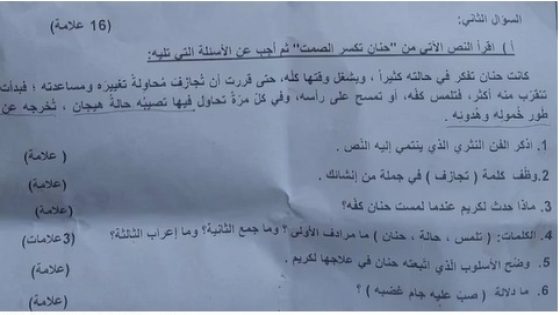 السؤال الثاني: (16 علامة)
أ ) اقرأ النص الآتي من "حنان تكسر الصمت" ثم أجب عن الأسئلة التي تليه:
كانت حنان تفكر في حالته كثيراً ، ويشغل وقتها كلّه، حتى قررت أن تُجازفَ مُحاولةً تغييره ومساعدته ؛ فبدأت
تتقرّب منه أكثر، فتلمس كفّه، أو تمسح على رأسه، وفي كلّ مرّة تحاول فيها تصيبُه حالةُ هيجان ، تُخرجه عن
طور خُموله وهُدوئه .
1. اذكر الفن النثري الذي ينتمي إليه النّص . ( علامة)
2.وظّف كلمة ( تجازف ) في جملة من إنشائك . (علامة)
3. ماذا حدث لكريم عندما لمست حنان كفّه؟ (علامة)
4. الكلمات: ( تلمس ، حالة ، حنان ) ما مرادف الأولى ؟ وما جمع الثانية؟ وما إعراب الثالثة؟ (3علامات)
5. وضّح الأسلوب الّذي اتبعته حنان في علاجها لكريم . (علامة)
6. ما دلالة ( صبّ عليه جام غضبه ) ؟ (علامة)